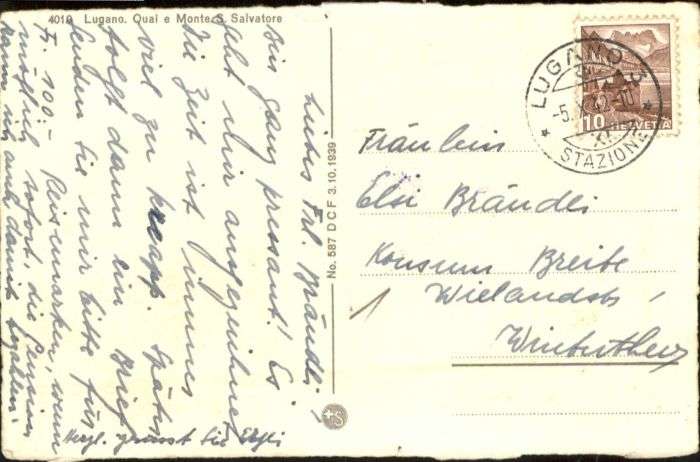 4019 Lugano. Quai e Monte S. Salvatore
Liebes Frl. Brändli,
Bin ganz pressant! Es
geht mir ausgezeichnet
die Zeit ist immer
viel zu knapp. Später
folgt dann ein Brief
Senden Sie mir bitte für
Fr. 100.- Reisemarken, wenn
möglich sofort, die Pension
kann ich auch damit bezahlen.
Herzl. grüsst Sie
No. 587 DCF 3.10.1939
S
LUGANO 3
-5.X.42-
STAZIONE
10 HELVETIA
Fräulein
Elsi Brändli
Konsum Breite
Wielandstr,
Winterthur